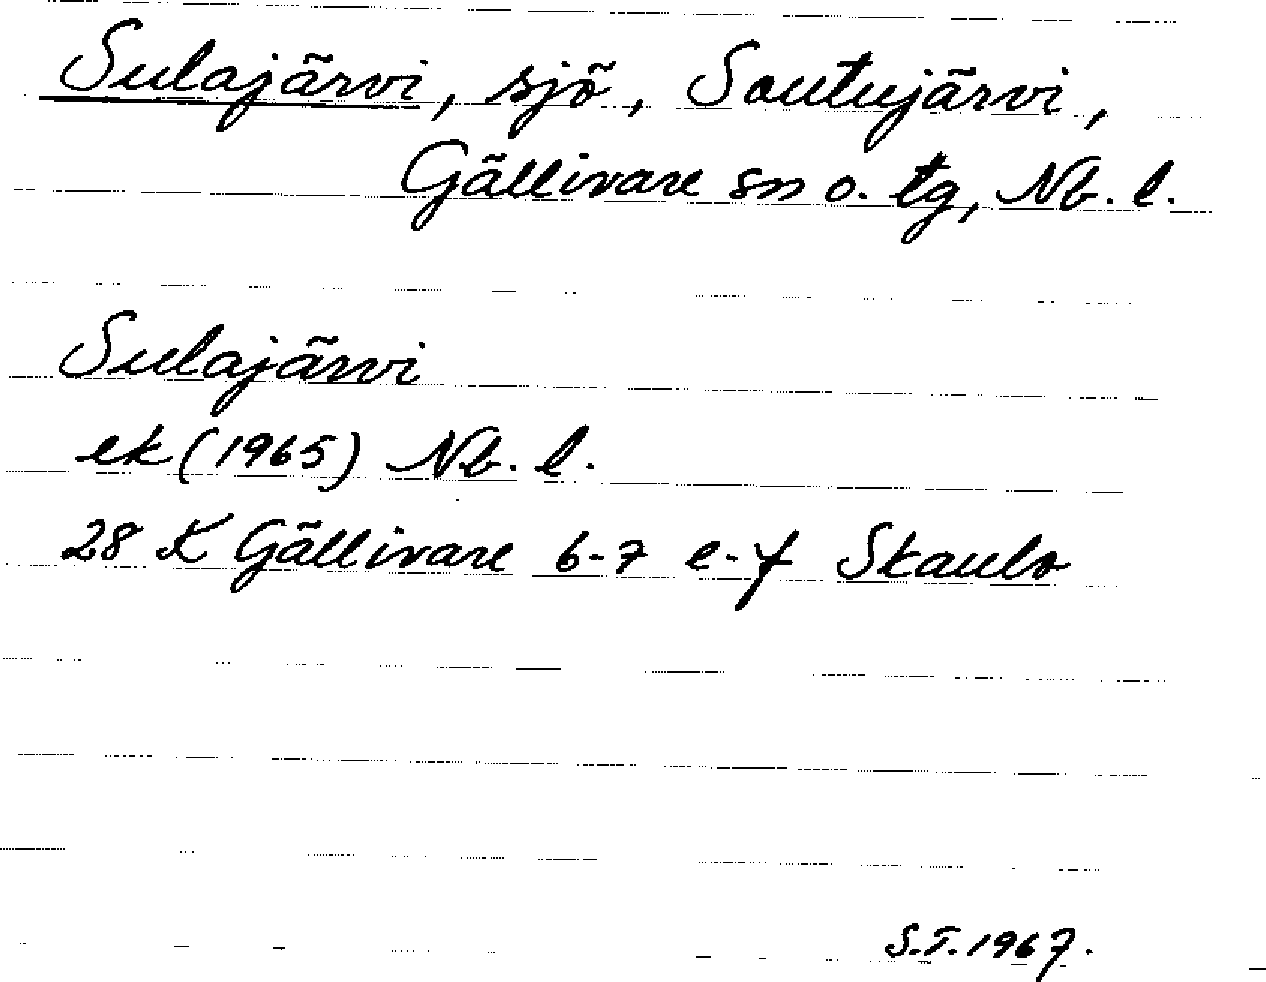 Sulajärvi, sjö, Soutujärvi,
Gällivare sn o. tg, Nb. l.
Sulajärvi
ek (1965) Nb. l.
28 K Gällivare 6-7 e-f Skaulo
S.T. 1967.